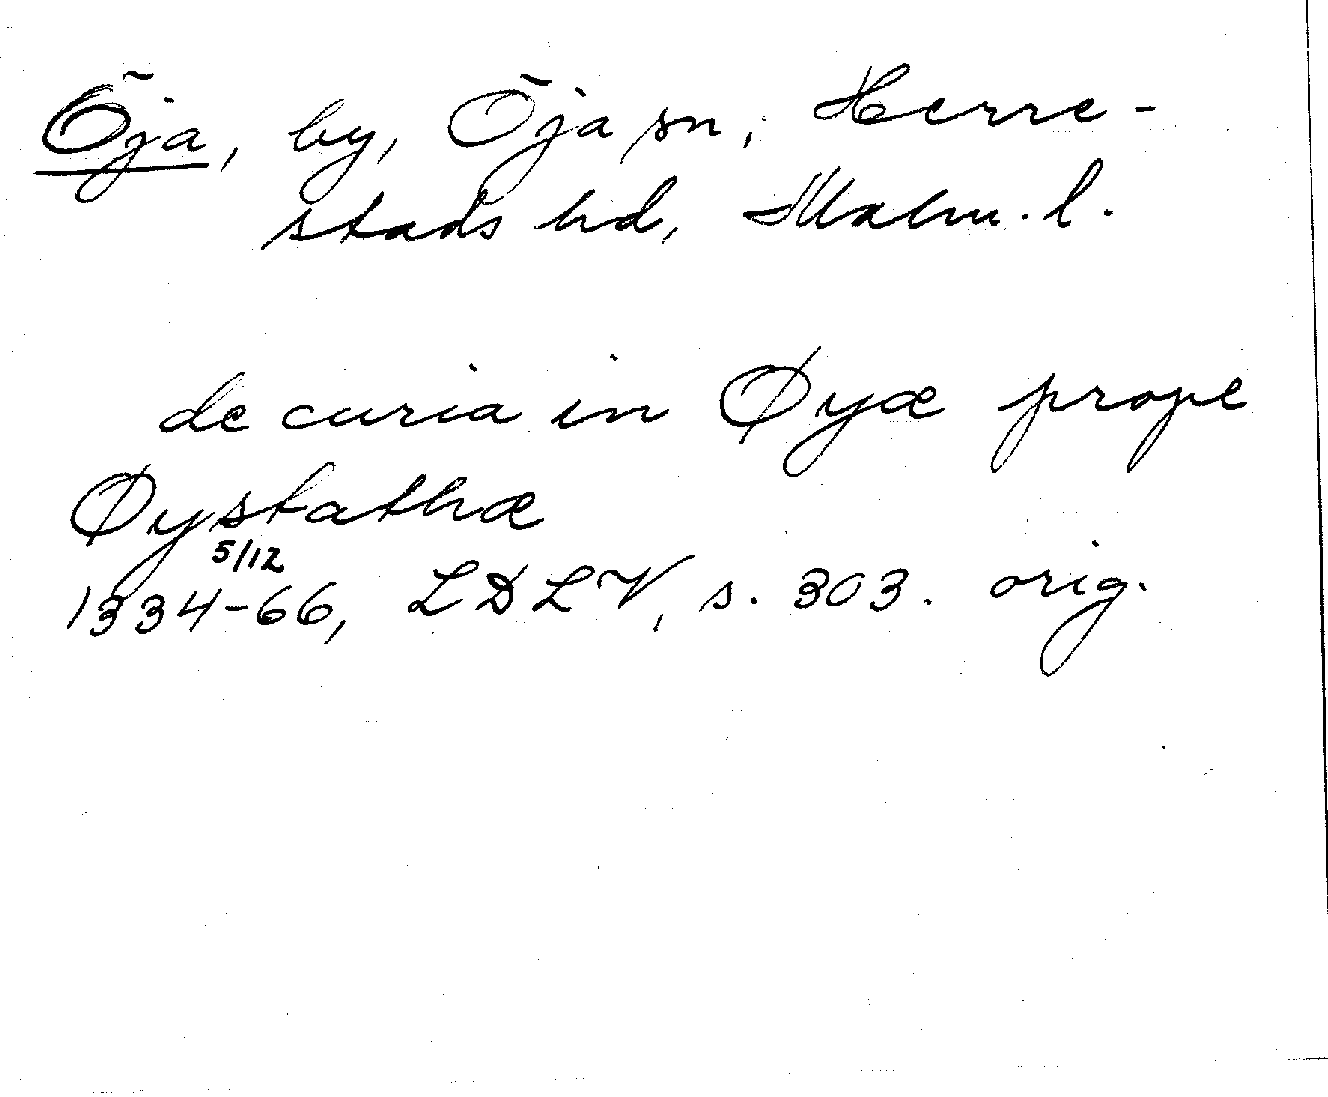 Öja, by, Öja sn, Herre-
stads hd, Malm. l.
de curia in Øyæ prope
Øystathæ
5/12
1334-66, LDLV, s. 303. orig.